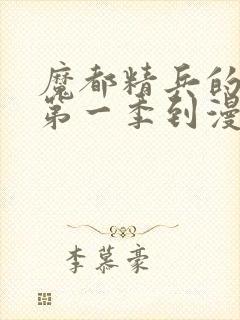 魔都精兵的
第一季到漫
李慕豪